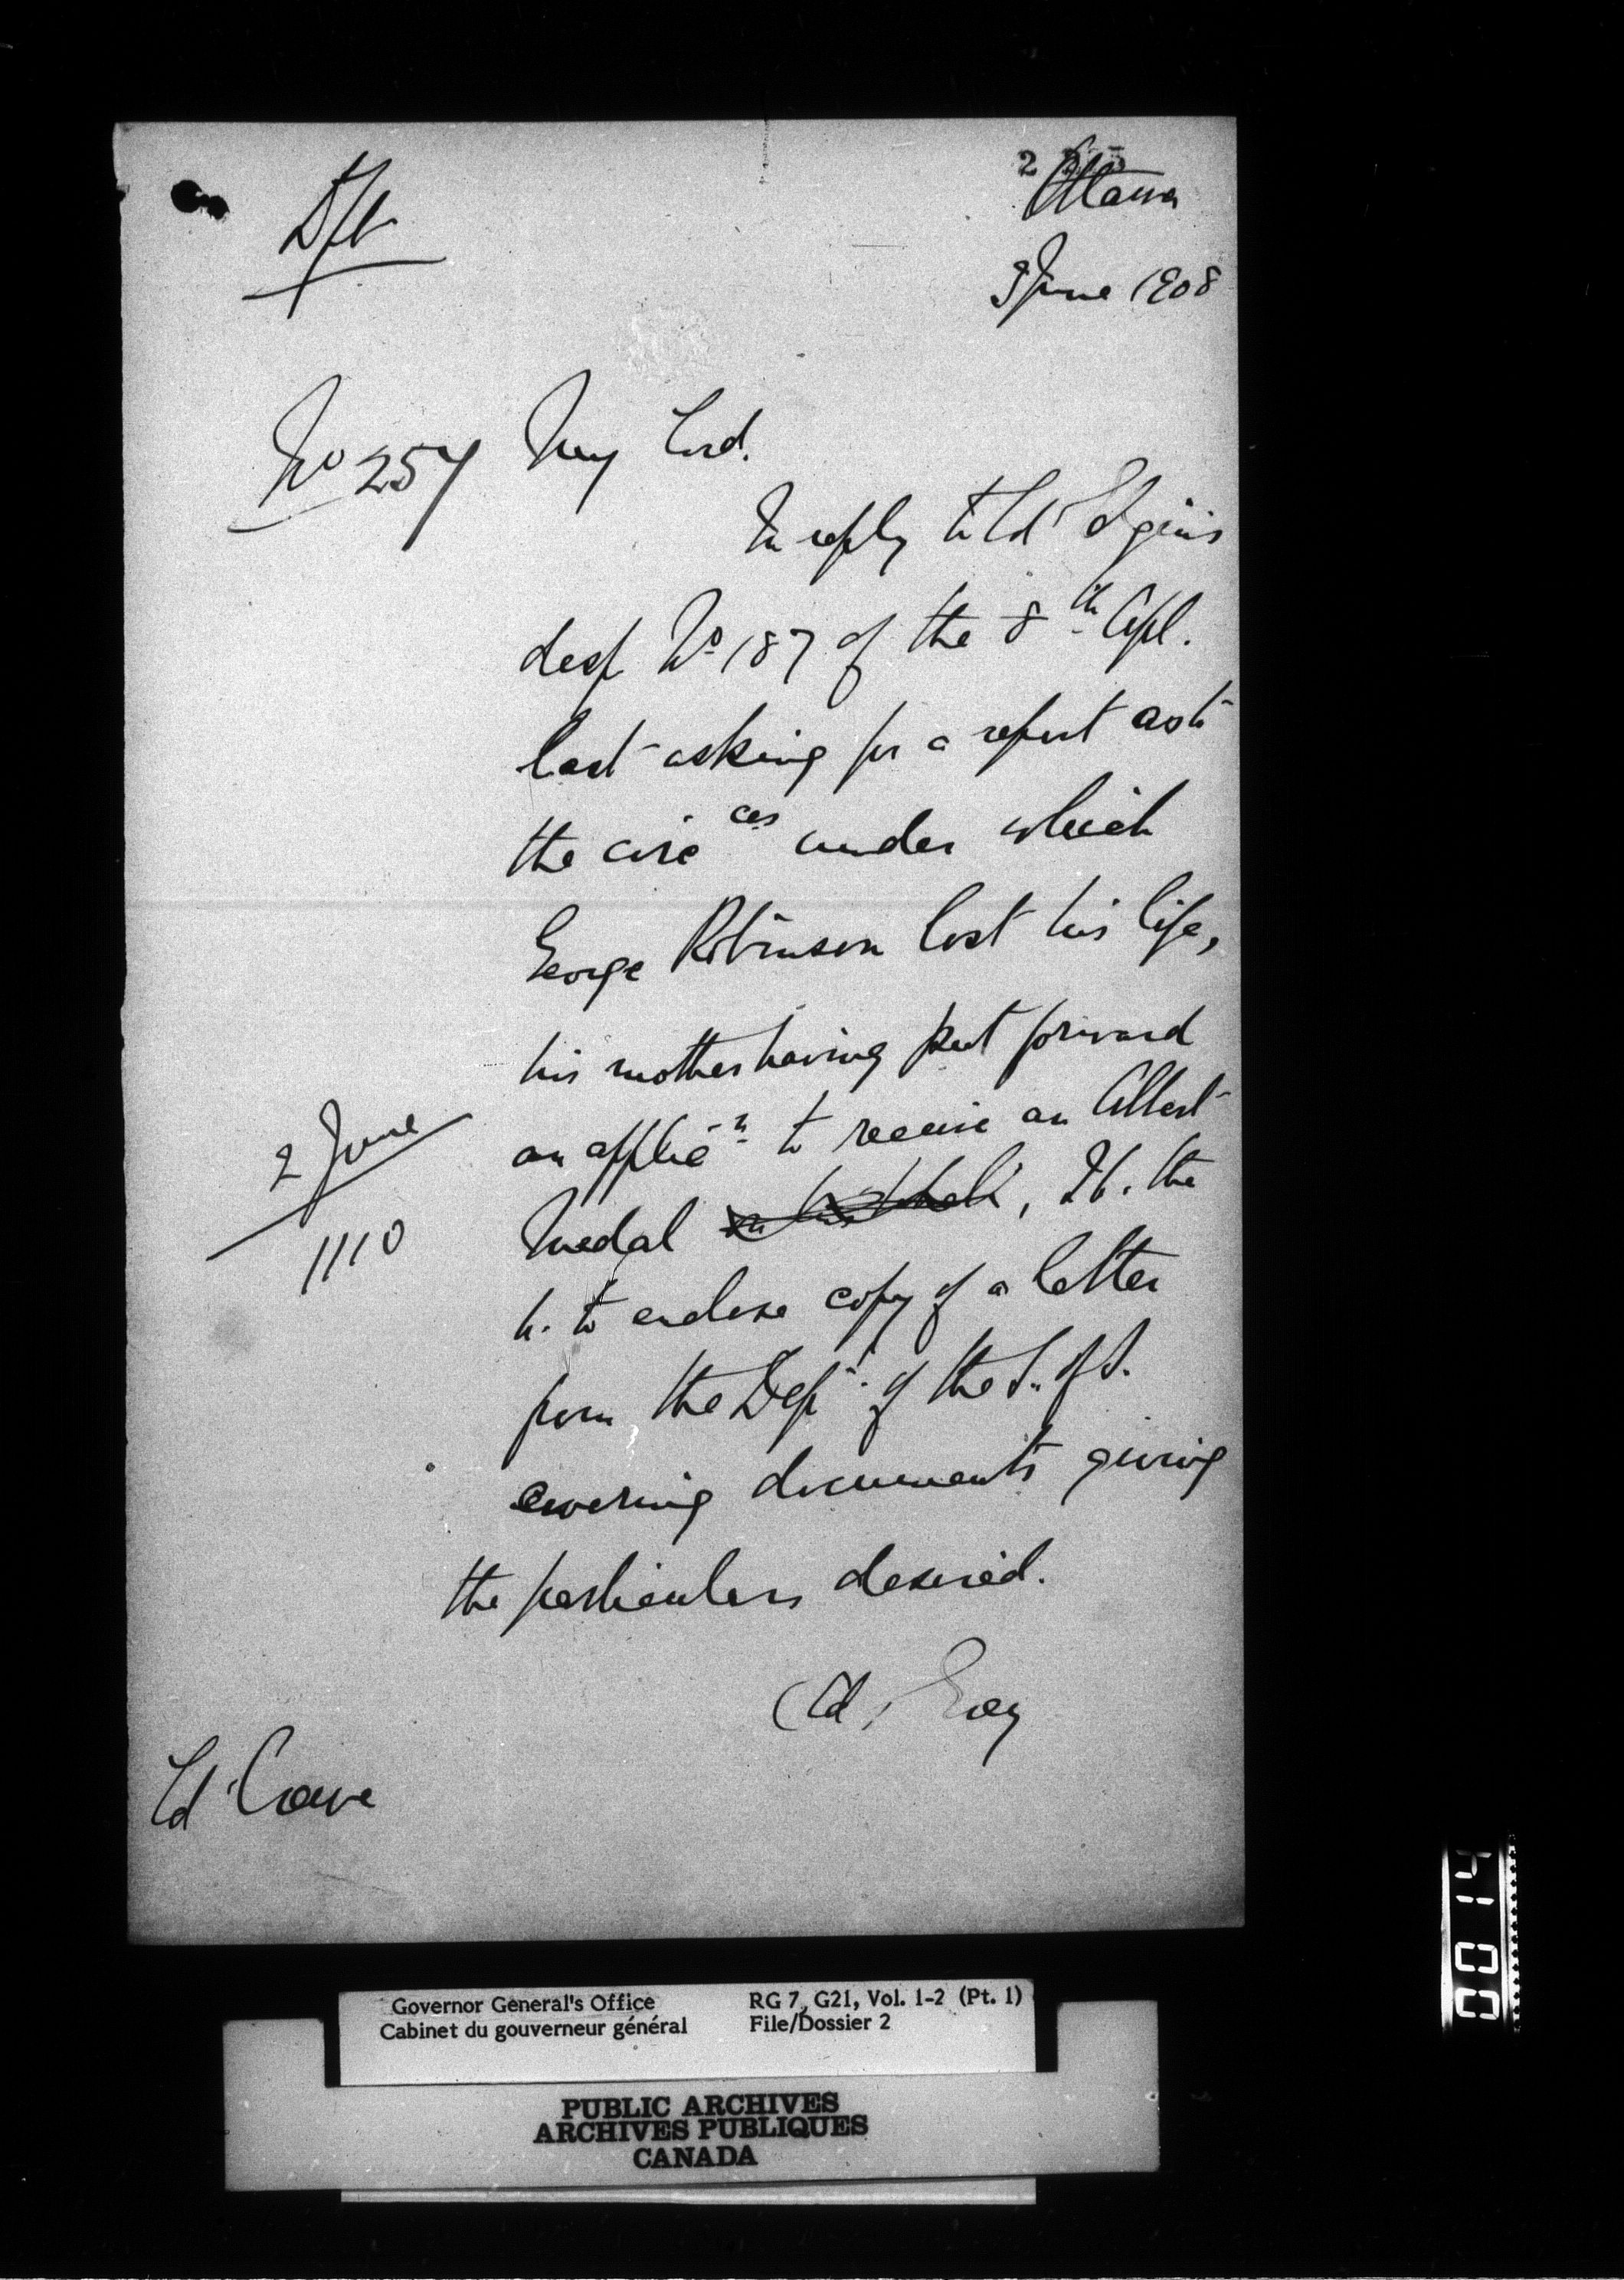 Dft
Ottawa
3 June 1908
No 257 My Lord.
In reply to Ld Elgin's
desp No 187 of the 8th Apl.
last asking for a report as to
the circces under which
George Robinson lost his life,
his mother having put forward
an applicn to receive an Albert
Medal, I h. the
h. to enclose copy of a letter
from the Dept. of the S. of S.
covering documents giving
the particulars desired.
2 June
1110
(Sd) Grey
Ld Crewe
0014
Governor General's Office
Cabinet du gouverneur général
RG 7, G21, Vol. 1-2 (Pt. 1)
File/Dossier 2
PUBLIC ARCHIVES
ARCHIVES PUBLIQUES
CANADA